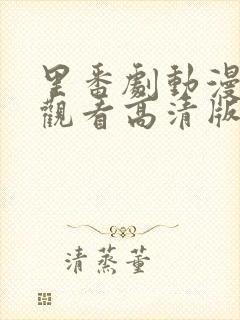 里番劇動漫
觀看高清版
清蒸董